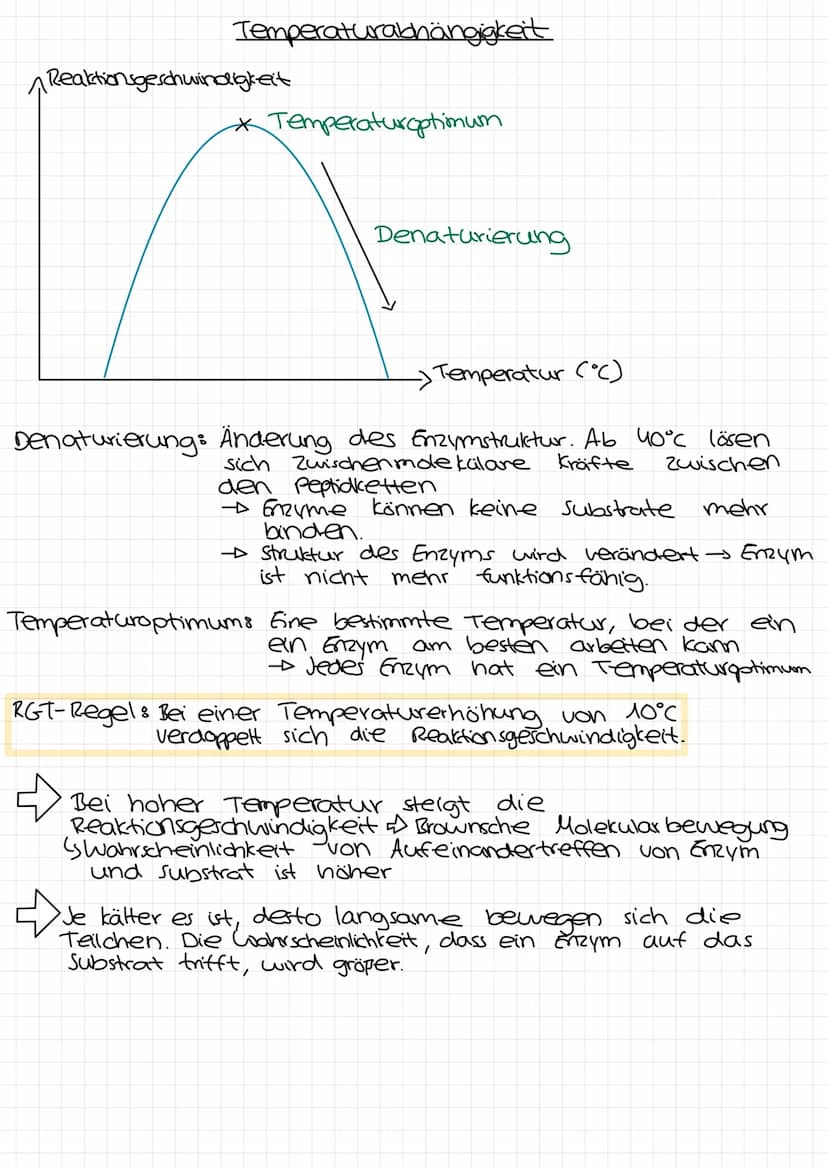 Temperaturabhängigkeit
Reaktionsgeschwindigkeit
Temperaturoptimum
Denaturierung
Temperatur (°C)
Denaturierung: Änderung des Enzymstruktur. Ab 40°C lösen
sich zwischenmolekülare Kräfte zwischen
den Peptidketten
→ Enzyme können keine Substrate mehr
binden.
→ Struktur des Enzyms wird verändert → Enzym
ist nicht mehr funktionsfähig.
Temperaturoptimum: Eine bestimmte Temperatur, bei der ein
ein Enzym am besten arbeiten kann
→ Jedes Enzym hat ein Temperaturoptimum
RGT-Regel: Bei einer Temperaturerhöhung von 10°C
verdoppelt sich die Reaktionsgeschwindigkeit.
⇨ Bei hoher Temperatur steigt die
Reaktionsgeschwindigkeit ⇨ Brownsche Molekularbewegung
↳ Wahrscheinlichkeit von Aufeinandertreffen von Enzym
und Substrat ist höher
⇨ Je kälter es ist, desto langsame bewegen sich die
Teilchen. Die Wahrscheinlichkeit, dass ein Enzym auf das
Substrat trifft, wird größer.